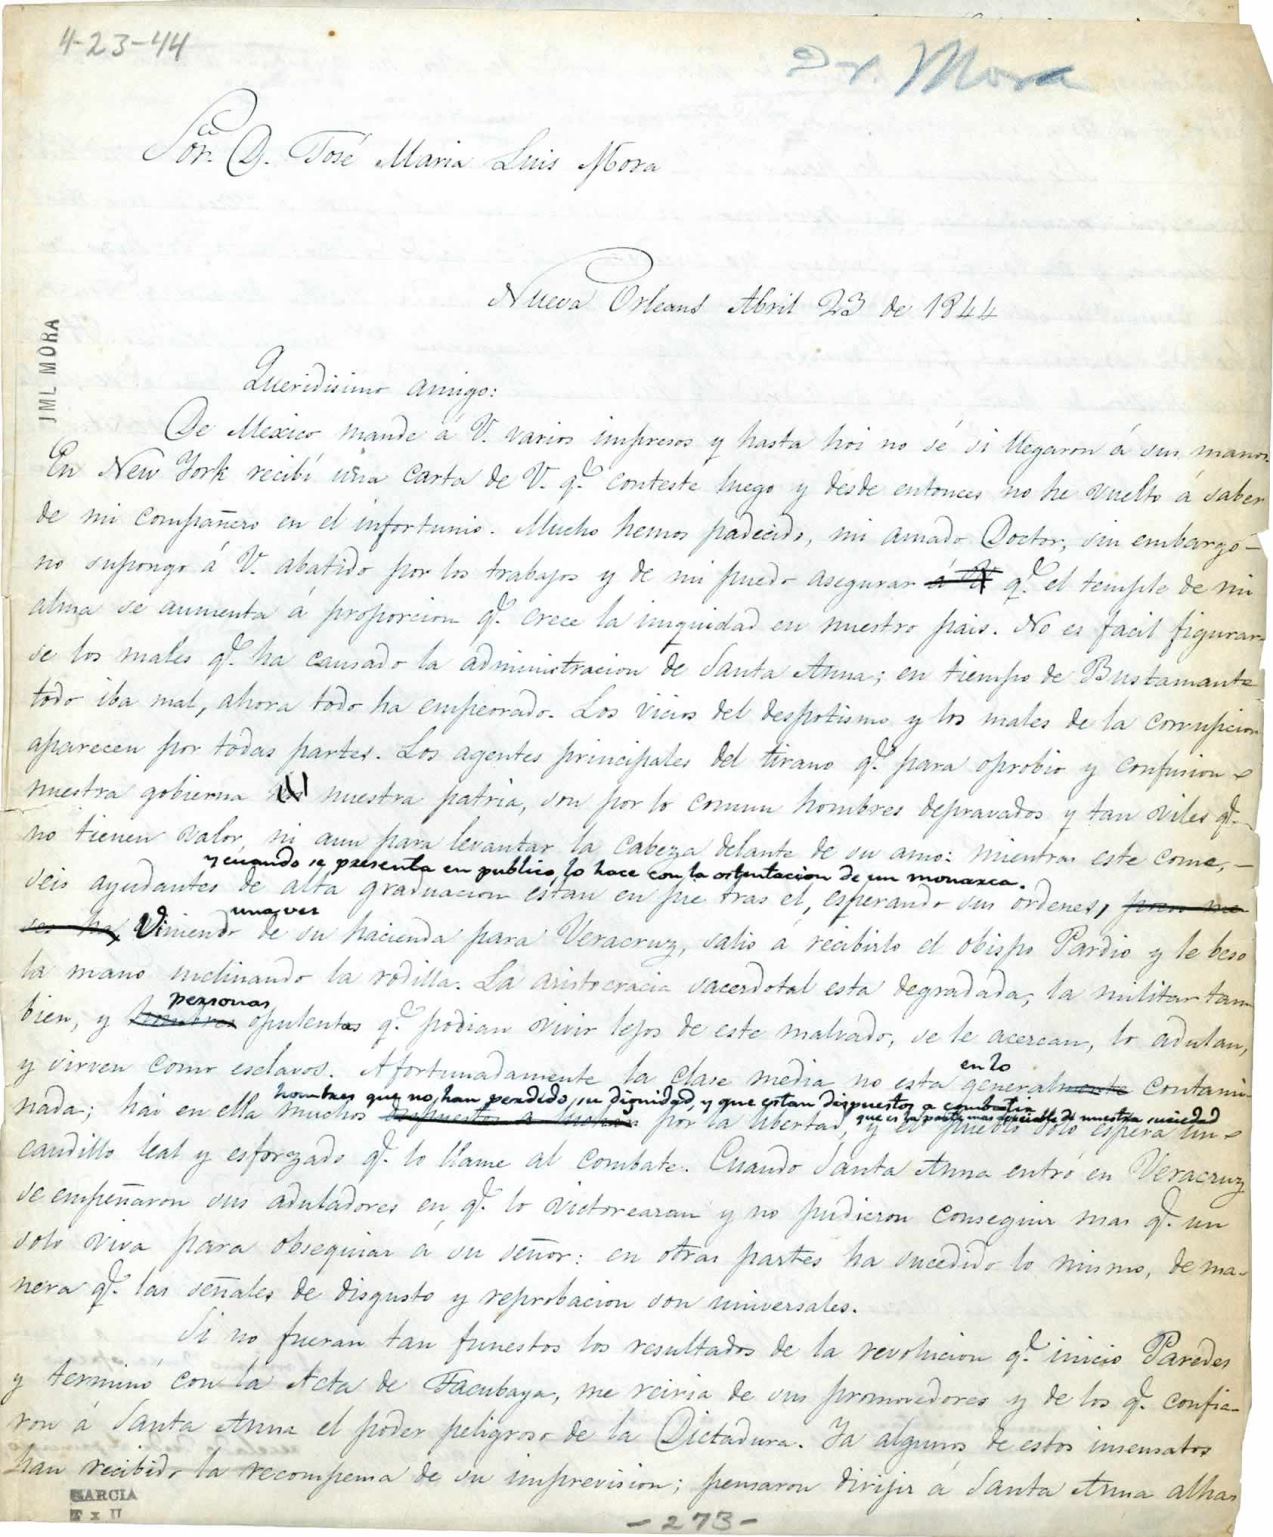 4-23-44
Dr. Mora
Sor. D. José Maria Luis Mora
Nueva Orleans Abril 23 de 1844
JML MORA
Queridisimo amigo:
De Mexico mande á V. varios impresos y hasta hoi no sé si llegaron á sus manos.
En New York recibí una carta de V. q.e conteste luego y desde entonces no he vuelto á saber
de mi compañero en el infortunio. Mucho hemos padecido, mi amado Doctor, sin embargo
no supongo á V. abatido por los trabajos y de mi puedo asegurar á V. q.e el temple de mi
alma se aumenta á proporcion q.e crece la iniquidad en nuestro pais. No es facil figurar-
se los males q.e ha causado la administracion de Santa Anna; en tiempo de Bustamante
todo iba mal, ahora todo ha empeorado. Los vicios del despotismo y los males de la corrupcion
aparecen por todas partes. Los agentes principales del tirano q.e para oprobio y confusion
nuestra gobierna nuestra patria, son por lo comun hombres depravados y tan viles q.e
no tienen valor, ni aun para levantar la cabeza delante de su amo: mientras este come,
y cuando se presenta en publico, lo hace con la ostentacion de un monarca.
seis ayudantes de alta graduacion estan en pie tras el, esperando sus órdenes, pocos me-
ses ha, Viniendo una vez de su hacienda para Veracruz, salio á recibirlo el obispo Pardio y le beso
la mano inclinando la rodilla. La aristocracia sacerdotal esta degradada, la militar tam
bien, y hombres personas opulentas q.e podian vivir lejos de este malvado, se le acercan, lo adulan,
y sirven como esclavos. Afortunadamente la clase media no esta en lo generalmente contami-
hombres que no han perdido su dignidad, y que estan dispuestos a combatir
nada; hai en ella muchos dispuestos a luchar por la libertad, y el pueblo que es la parte mas apreciable de nuestra sociedad solo espera un
caudillo leal y esforzado q.e lo llame al combate. Cuando Santa Anna entró en Veracruz
se empeñaron sus aduladores en q.e lo victorearan y no pudieron conseguir mas q.e un
solo viva para obsequiar á su señor: en otras partes ha sucedido lo mismo, de ma-
nera q.e las señales de disgusto y reprobacion son universales.
Si no fueran tan funestos los resultados de la revolucion q.e inicio Paredes
y terminó con la Acta de Tacubaya, me reiria de sus promovedores y de los q.e confia-
ron á Santa Anna el poder peligroso de la Dictadura. Ya algunos de estos insensatos
han recibido la recompensa de su imprevision; pensaron dirijir á Santa Anna alhas
GARCIA
T x U
-273-